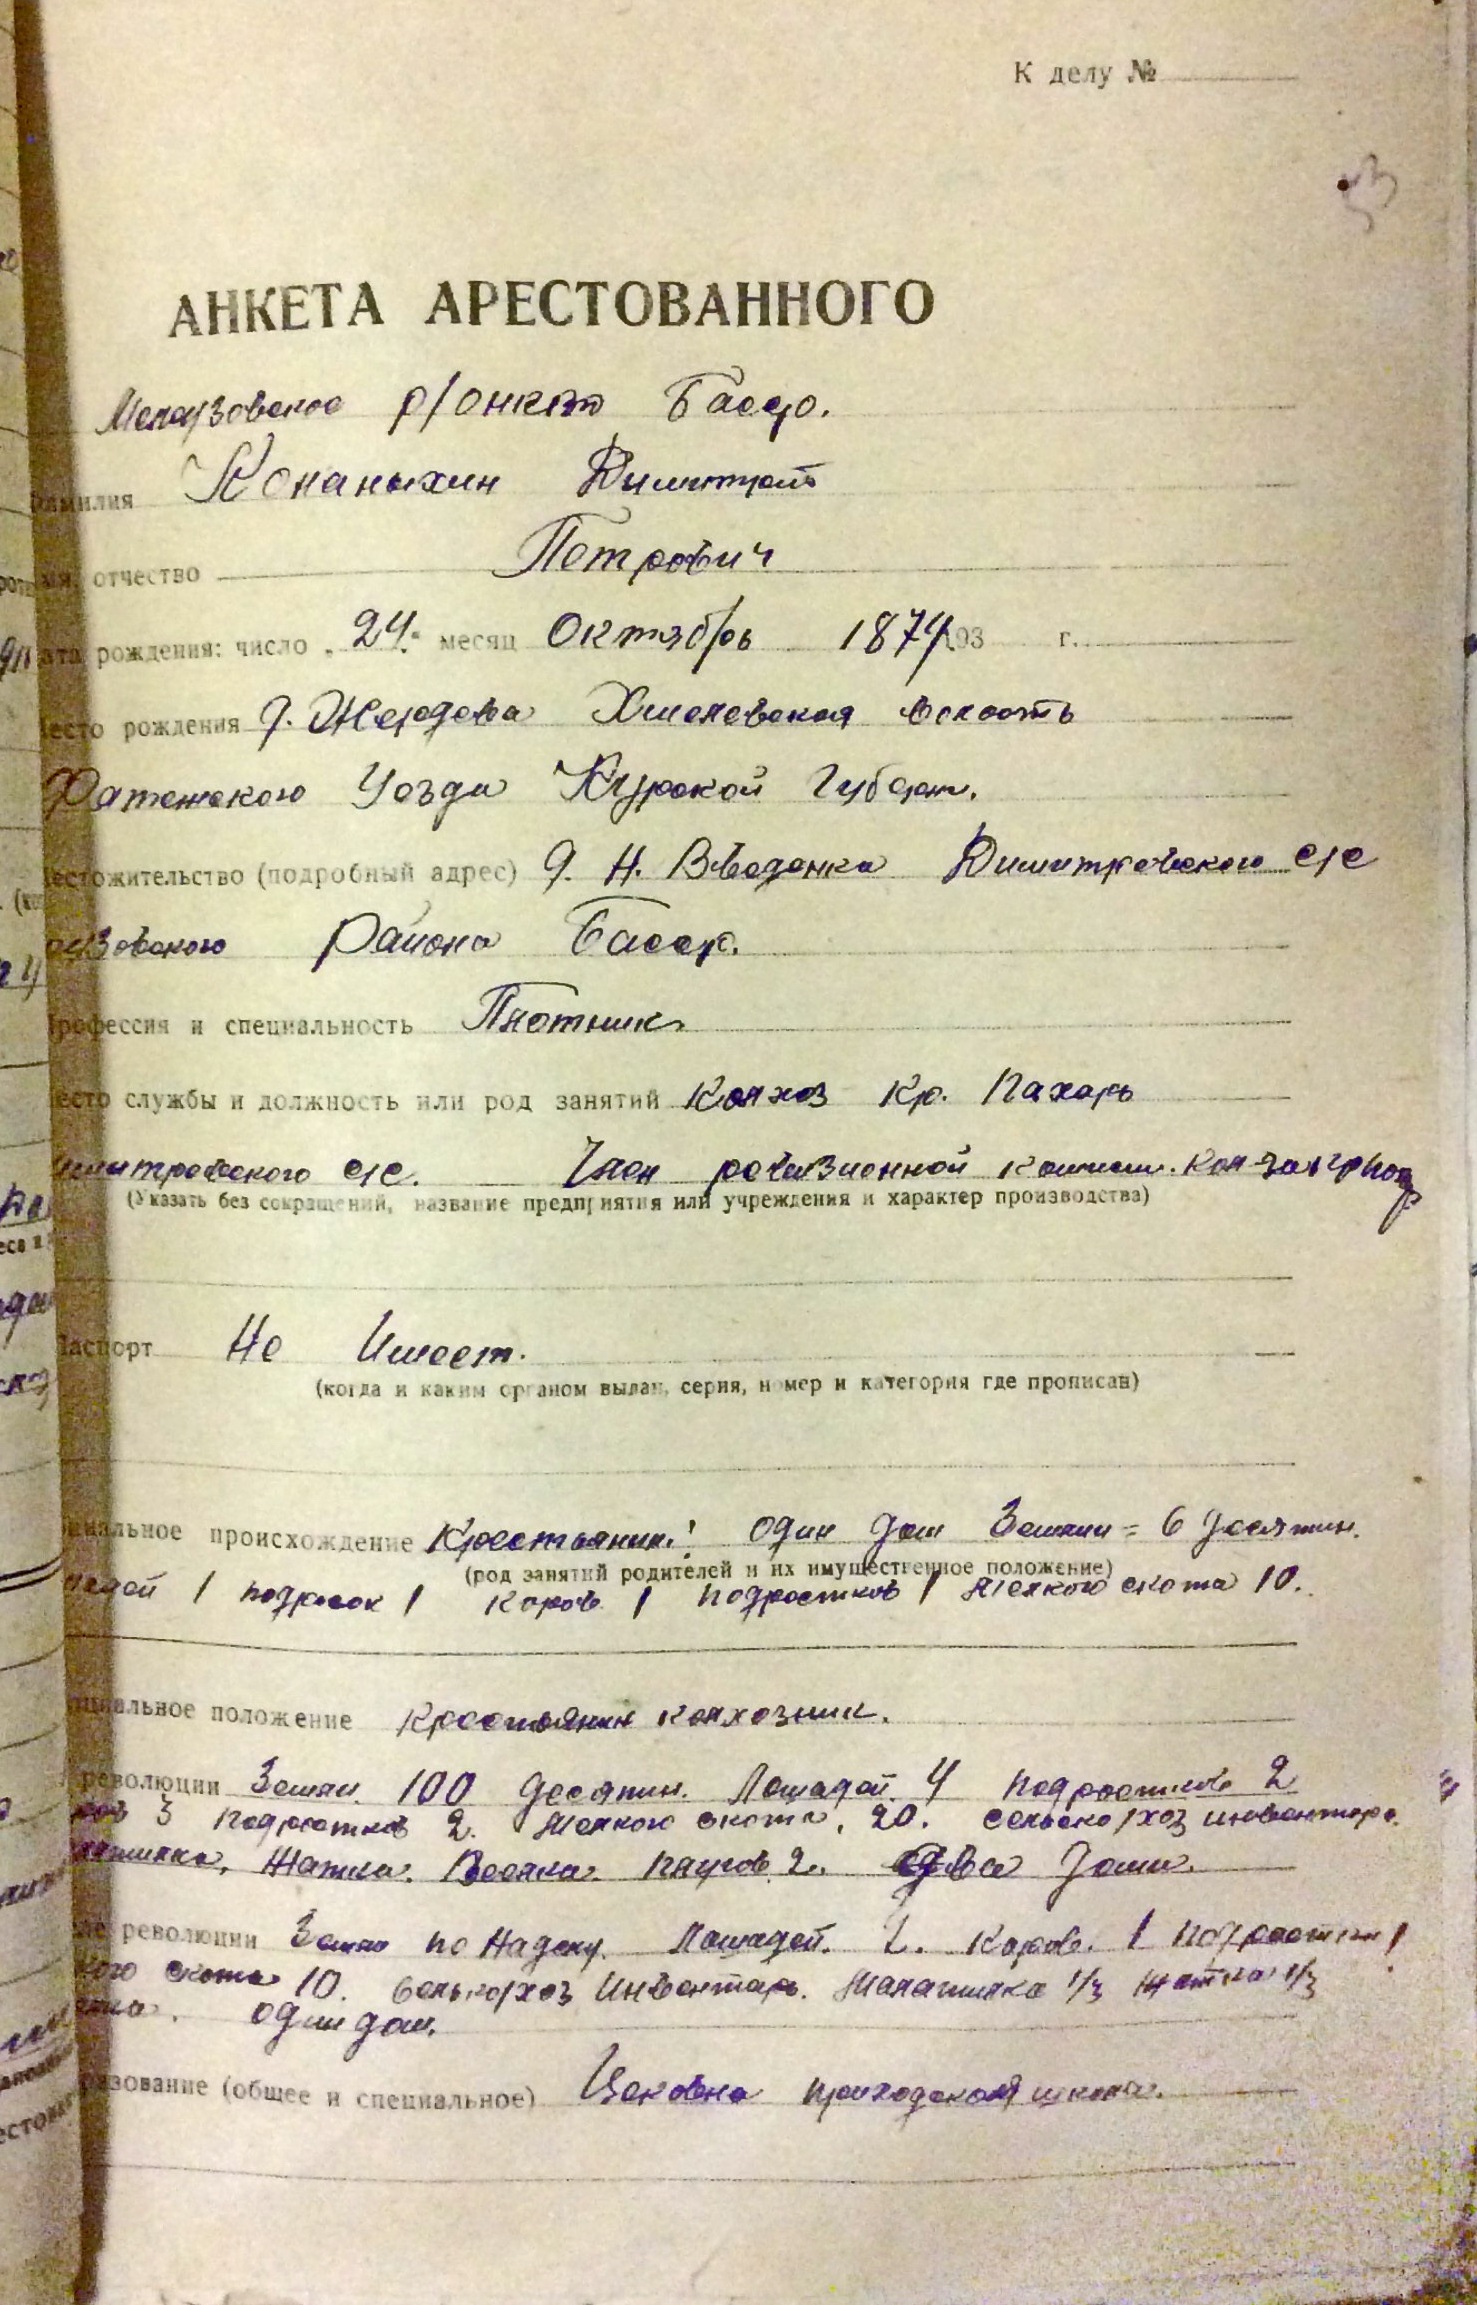 К делу №
АНКЕТА АРЕСТОВАННОГО
Мелеузовское р/о НКВД Басср.
Фамилия Конаныхин Димитрий
отчество Петрович
дата рождения: число „24“ месяц Октябрь 1874 193 г.
место рождения д. Жердева Хмелевская волость
Фатежского Уезда Курской Губерн.
местожительство (подробный адрес) д. Н. Введенка Димитровского с/с
узовского Района Басср.
Профессия и специальность Плотник
место службы и должность или род занятий Колхоз Кр. Пахарь
имитровского с/с. Член ревизионной комисси.
(Указать без сокращений, название предприятия или учреждения и характер производства)
Паспорт Не Имеет.
(когда и каким органом выдан, серия, номер и категория где прописан)
циальное происхождение Крестьянин: один дом Земли = 6 десятин.
(род занятий родителей и их имущественное положение)
шадей 1 подросток 1 коров 1 подростков 1 Мелкого скота 10.
циальное положение Крестьянин колхозник.
революции Земли 100 десятин. Лошадей 4 подростков 2
ров 3 подростков 2. Мелкого скота, 20. сельско/хоз инвентарь.
Жатка. Веялка. плугов 2. два Дома.
революции Земли по Наделу. Лошадей. 2. Коров. 1 подростков 1
кого скота 10. Сельско/хоз Инвентарь. Малатилка 1/3 жатка 1/3
один дом.
разование (общее и специальное) Цековно приходская школа.